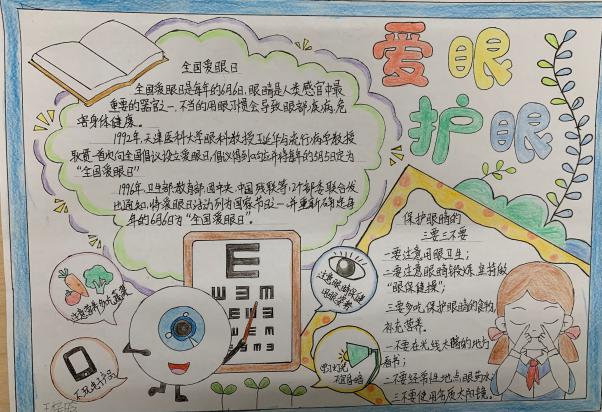 爱眼
护眼
全国爱眼日
全国爱眼日是每年的6月6日,眼睛是人类感官中最
重要的器官之一,不当的用眼习惯会导致眼部疾病,危
害身体健康。
1992年,天津医科大学眼科教授王延华与流行病学教授
耿贯一首次向全国倡议设立爱眼日,倡议得到响应并将每年的5月5日定为
“全国爱眼日”
1996年,卫生部,教育部,团中央,中国残联等12个部委联合发
出通知,将爱眼日活动列为国家节日之一,并重新确定每
年的6月6日为“全国爱眼日”。
保护眼睛的
三要三不要
一要注意用眼卫生;
二要注意眼睛锻炼,坚持做
“眼保健操”;
三要多吃保护眼睛的食物,
补充营养。
一不要在光线太暗的地方
看书;
二不要经常性地点眼药水;
三不要使用劣质太阳镜。
注意营养多吃蔬菜
不玩电子产品
注意眼睛保健
用眼营养
E